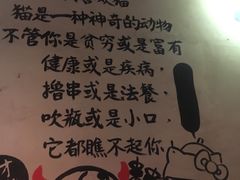 猫是一种神奇的动物
不管你是贫穷或是富有
健康或是疾病，
撸串或是法餐，
吹瓶或是小口，
它都瞧不起你